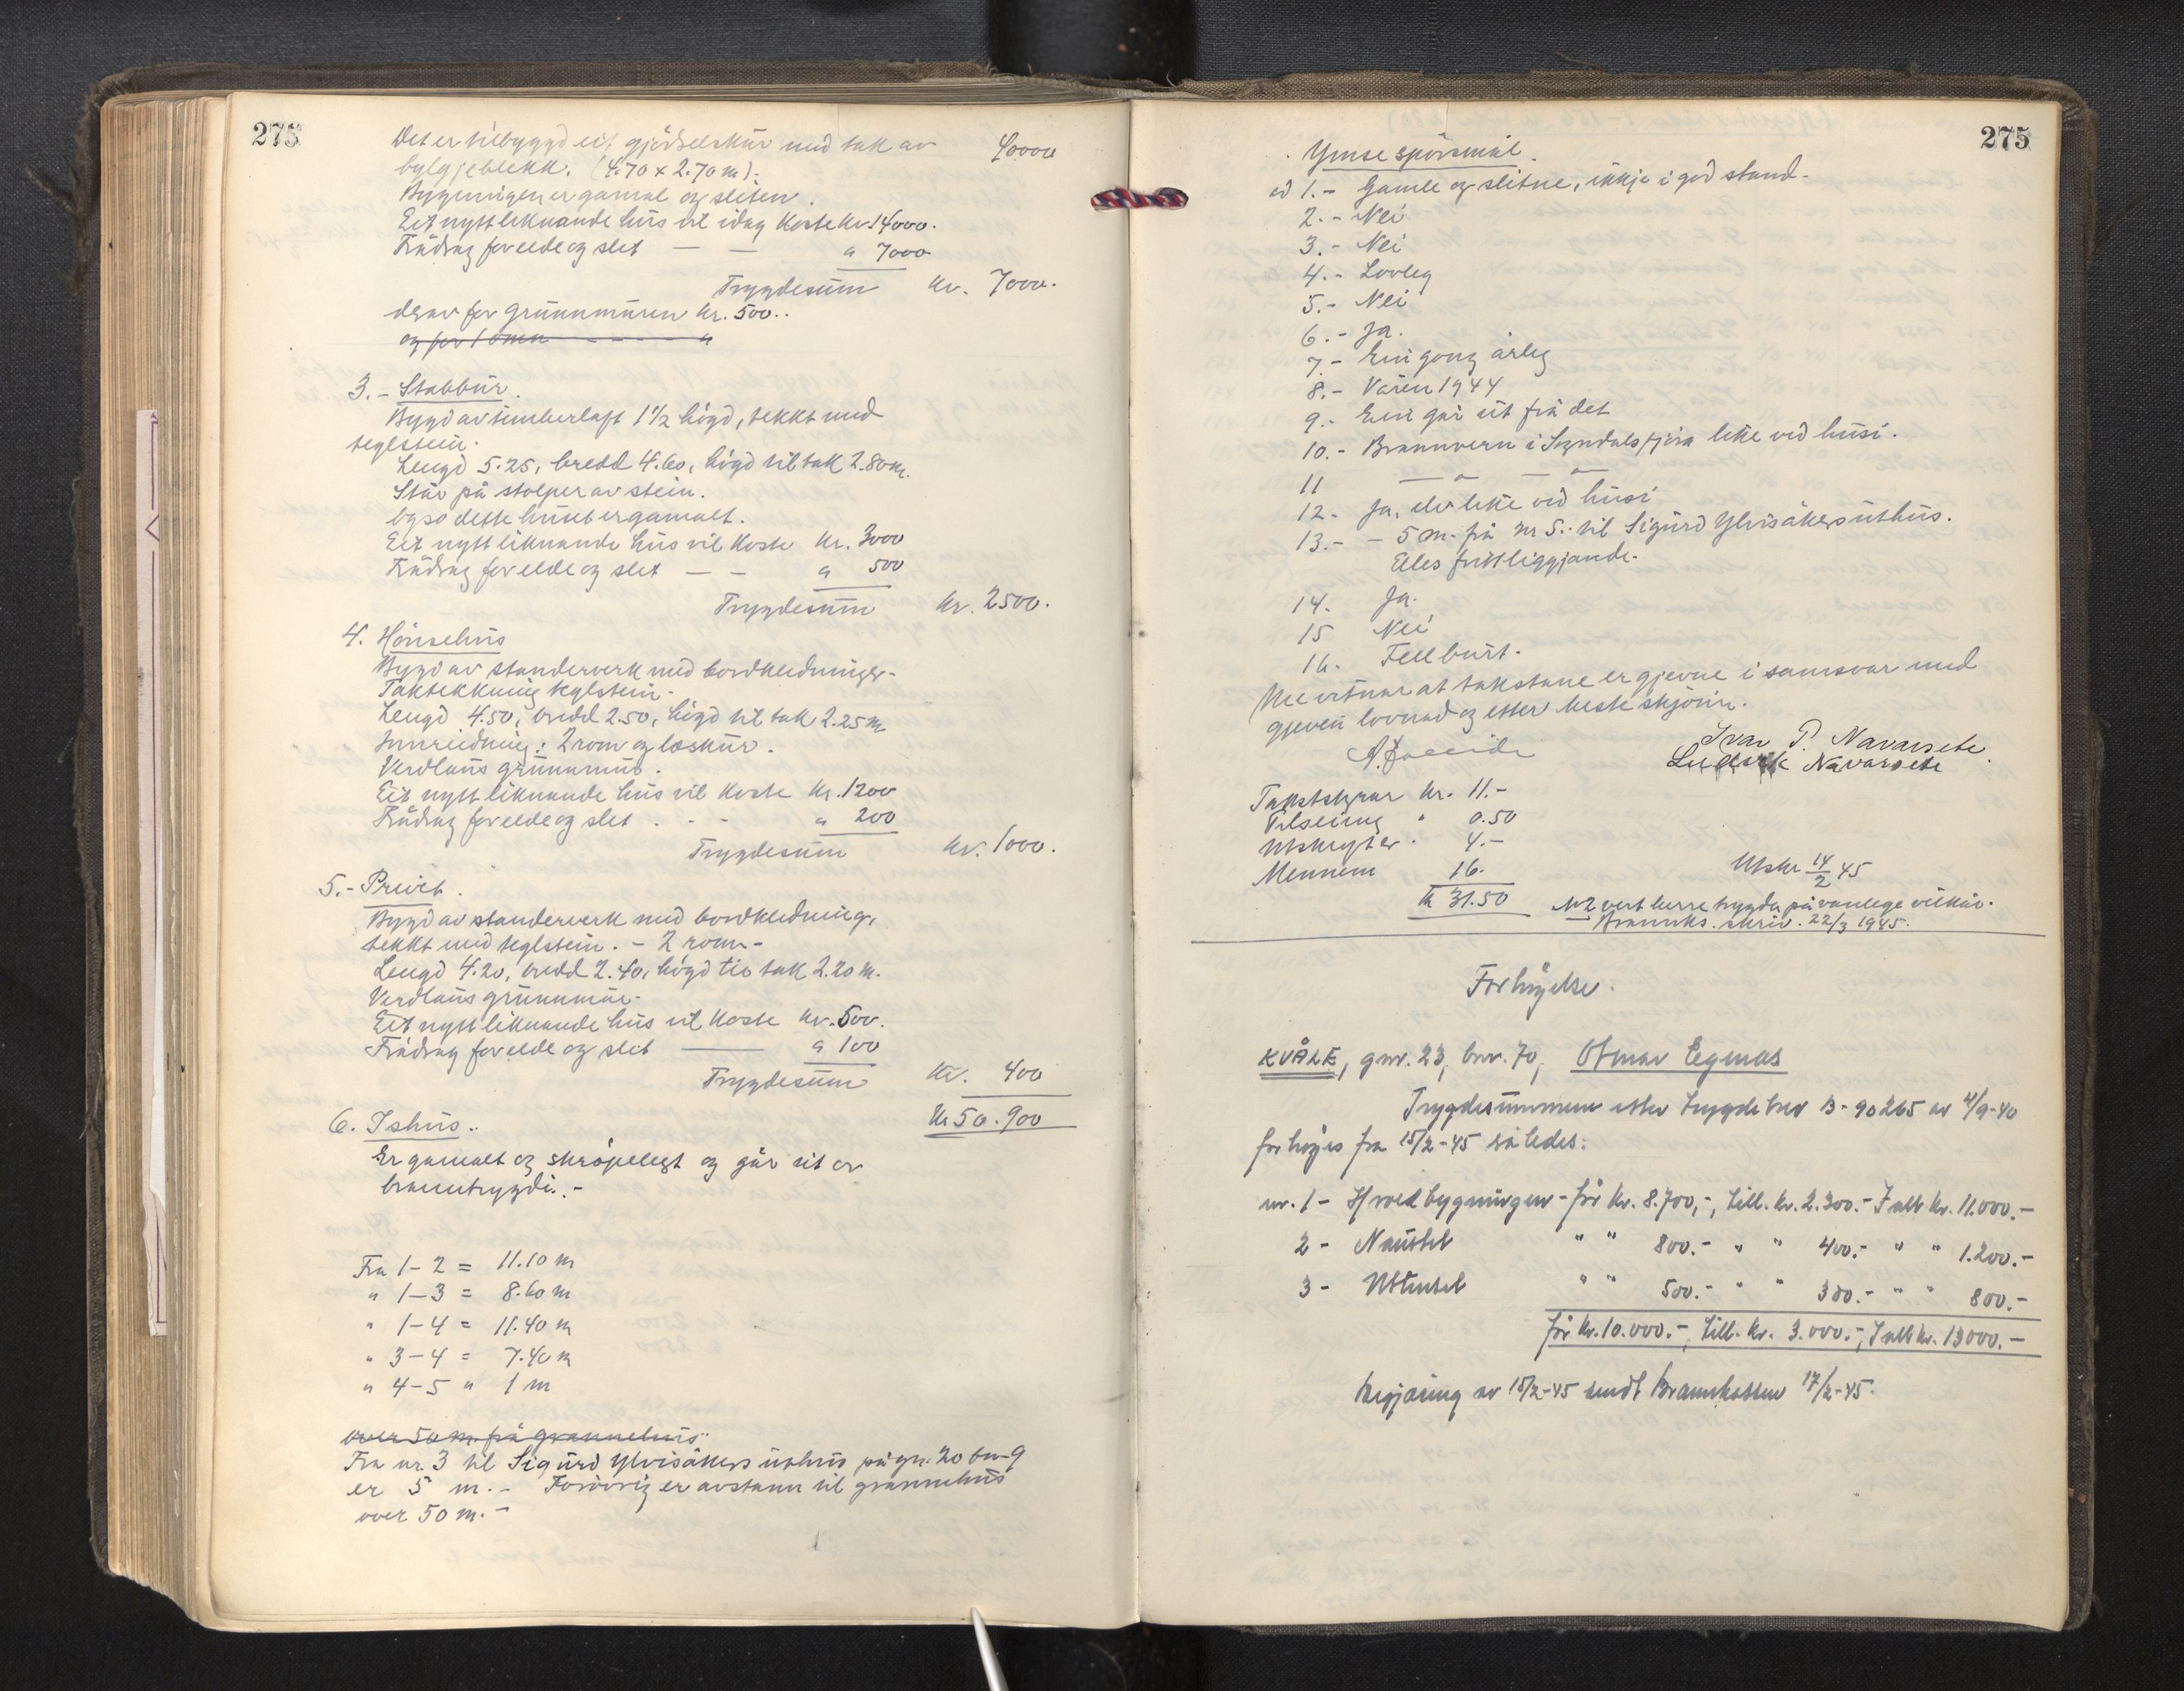 275
Det er tilbyggd eit gjödselskur med tak av 40000
bylgjeblekk. (4.70 x 2.70 m).-
Bygningen er gamal og sliten.
Eit nytt liknande hus vil idag koste kr. 14000.
Frådrag for elde og slit — — " 7000
Trygdesum kr. 7000.
derav for grunnmuren kr. 500..
og for 1 omn - - - - - "
3.- Stabbur.
Bygd av timberlaft 1 1/2 högd, tekkt med
teglstein.
Lengd 5.25, bredd 4.60, högd til tak 2.80 m.
Står på stolper av stein.
Også dette huset er gamalt.
Eit nytt liknande hus vil koste kr. 3000
Frådrag for elde og slit — — " 500
Trygdesum kr. 2500.
4. Hönsehus
Bygd av standerverk med bordkledninger.
Taktekking teglstein.
Lengd 4.50, bredd 2.50, högd til tak 2.25 m
Innreidning: 2 rom og loskur.
Verdlaus grunnmur.
Eit nytt liknande hus vil koste kr. 1200
Frådrag for elde og slit . - - " 200
Trygdesum kr. 1000.
5.- Privet.
Bygd av standerverk med bordkledning,
tekkt med teglstein. - 2 rom -
Lengd 4.20, bredd 2.40, högd til tak 2.20 m.
Verdlaus grunnmur.
Eit nytt liknande hus vil koste kr. 500.
Frådrag for elde og slit —— " 100
Trygdesum kr. 400
Kr 50.900
6. Ishus..
Er gamalt og skröpelegt og går ut av
branntrygdi. -
Fra 1-2 = 11.10 m
" 1-3 = 8.60 m
" 1-4 = 11.40 m
" 3-4 = 7.40 m
" 4-5 " 1 m
over 50 m. frå grannehus.
Fra nr. 3 til Sigurd Ylvisåkers uthus på gn. 20 bn. 9
er 5 m. - Forövrig er avstann til grannehus
over 50 m. -
275
Ymse spörsmål.
ad 1. - Gamle og slitne, ikkje i god stand.
2. - Nei
3. - Nei
4. - Lovleg
5. - Nei
6. - Ja.
7. - Ein gong årleg
8. - Våren 1944
9. - Ein går ut frå det
10. - Brannvern i Sogndalsfjöra like ved husi.
11 — " — "
12. - Ja, elv like ved husi
13. - - 5 m. frå nr 5. til Sigurd Ylvisåkers uthus.
Elles frittliggjande.
14. Ja.
15 Nei
16. Fellburt.
Me vitnar at takstane er gjevne i samsvar med
gjeven lovnad og etter beste skjönn.
Ivar P. Navarsete.
Ludvik Navarsete
Takststyrar kr. 11.-
Tilseing " 0.50
Utskrifter . 4.-
Mennene 16.
Kr 31.50
Utskr 14/2 45
Nr 2 vert berre trygda på vanlege vilkår.
Brannks. skriv. 22/3 1945.
Forhöyelse.
KVÅLE, gnr. 23, bnr. 70, Otmar Eggmas
Trygdesummene etter trygdebrev B- 90265 av 4/9-40
forhöyes fra 15/2-45 således:
nr. 1 - Hovedbygningen - för kr. 8.700,-, till. kr. 2.300.- I alt kr. 11.000.-
2 - Naustet " " 800.- " " 400.- " " 1.200.-
3 - Uthuset " " 500.- " " 300.- " " 800.-
för kr. 10.000.-, till. kr. 3.000.-, I alt kr. 13000.-
Begjæring av 15/2-45 sendt Brannkassen 17/2-45.